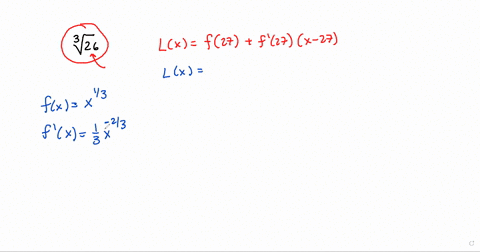 ∛26
L(x) = f(27) + f'(27) (x-27)
L(x) =
f(x) = x^{1/3}
f'(x) = \frac{1}{3} x^{-2/3}